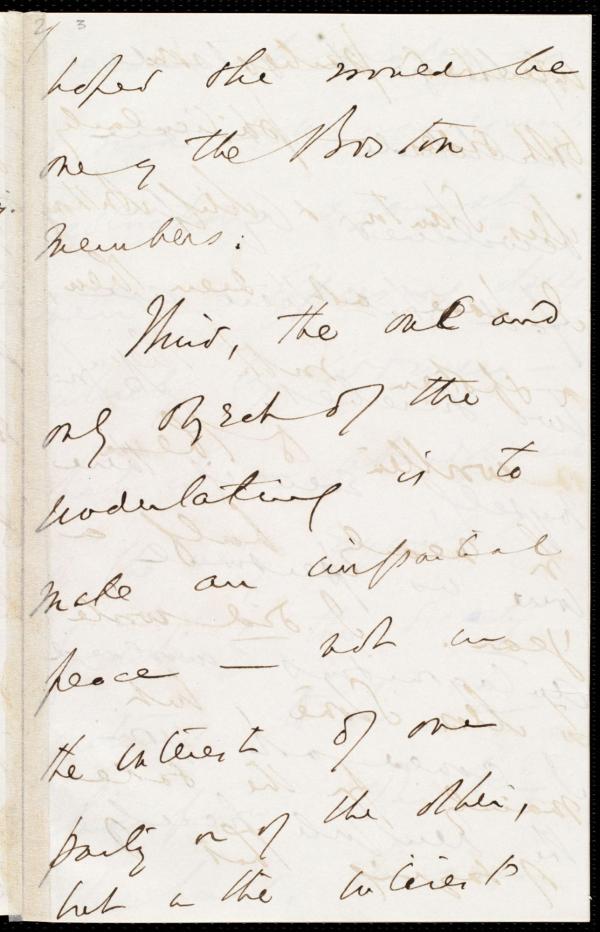 2/ 3
hoped she would be
one of the Boston
members.
Mind, the one and
only object of the
undertaking is to
make an impartial
peace — not in
the interest of one
party or of the other,
but in the interests